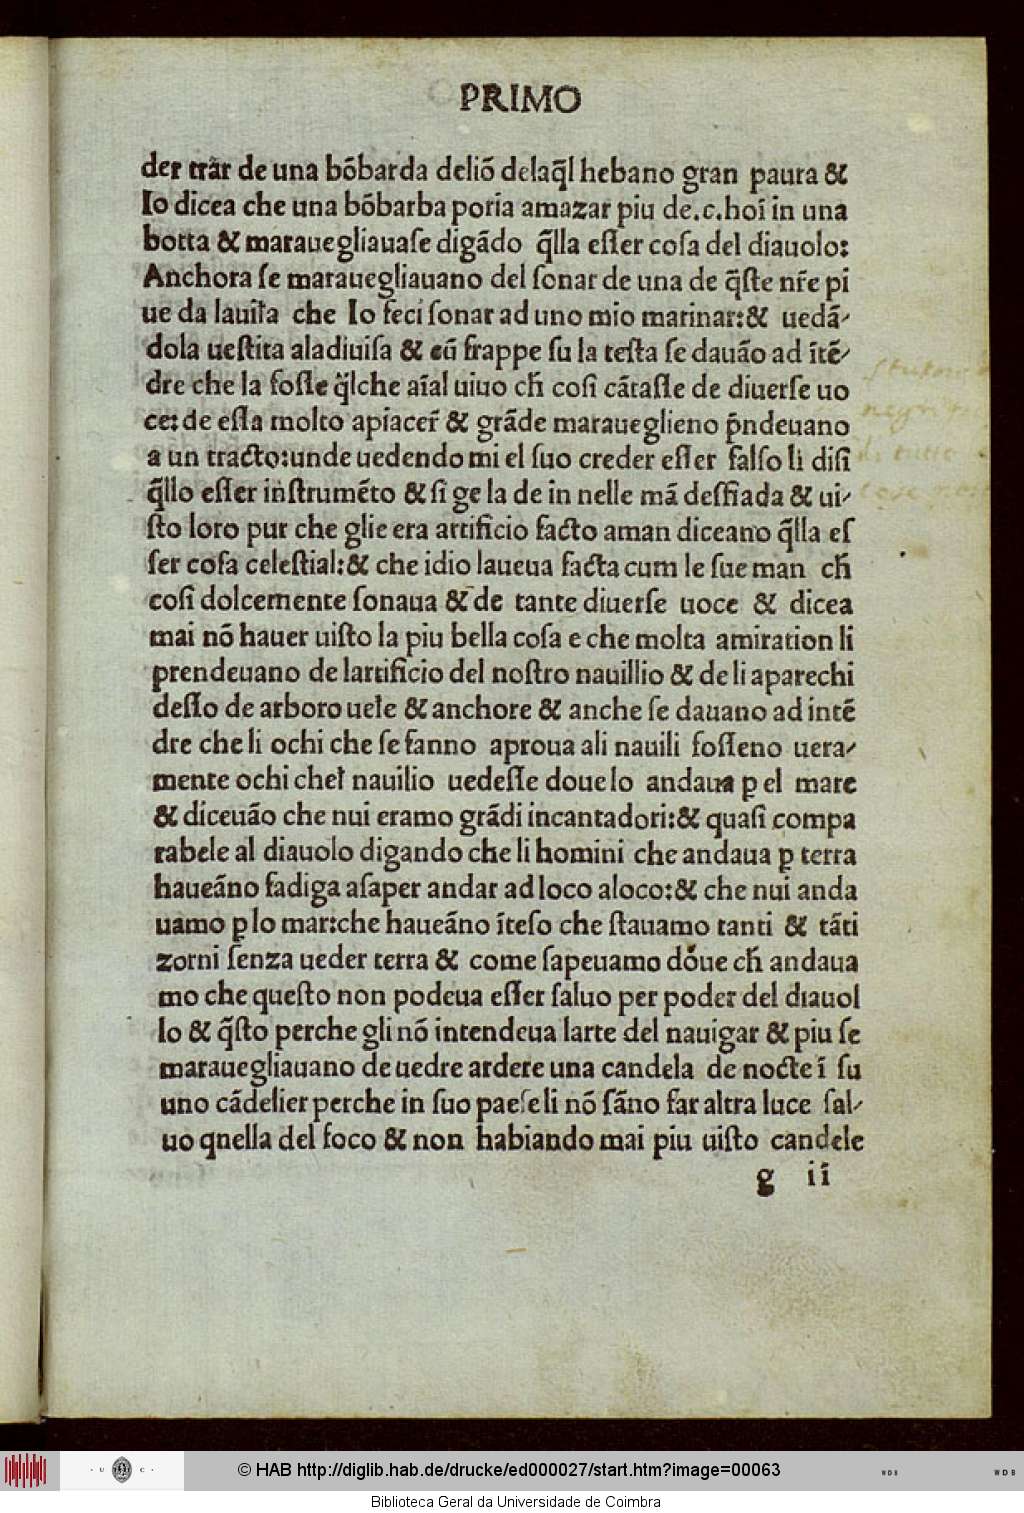 PRIMO
der trãr de una bõbarda deliõ delaq̃l hebano gran paura &
Io dicea che una bõbarba poria amazar piu de.c.hoĩ in una
botta & marauegliauaſe digãdo q̃lla eſſer coſa del diauolo:
Anchora ſe marauegliauano del ſonar de una de q̃ſte nr̃e pi
ue da lauiła che Io feci ſonar ad uno mio marinar:& uedã⸗
dola ueſtita aladiuiſa & cũ frappe ſu la teſta ſe dauão ad ĩtẽ⸗
dre che la foſſe q̃lche aĩal uiuo ch̃ coſi cãtaſſe de diuerſe uo
ce: de eſſa molto apiacer̃ & grãde maraueglieno p̃ndeuano
a un tracto:unde uedendo mi el ſuo creder eſſer falſo li diſi
q̃llo eſſer inſtrumẽto & ſi ge la de in nelle mã desfiada & ui⸗
ſto loro pur che glie era artificio facto aman diceano q̃lla eſ
ſer coſa celeſtial:& che idio laueua facta cum le ſue man ch̃
coſi dolcemente ſonaua & de tante diuerſe uoce & dicea
mai nõ hauer uiſto la piu bella coſa e che molta amiration li
prendeuano de lartificio del noſtro nauillio & de li aparechi
deſſo de arboro uełe & anchore & anche ſe dauano ad intẽ
dre che li ochi che ſe fanno aproua ali nauili foſſeno uera⸗
mente ochi cheł nauilio uedeſſe doue lo andaua ꝑ el mare
& diceuão che nui eramo grãdi incantadori:& quaſi compa
rabele al diauolo digando che li homini che andaua ꝑ terra
haueãno fadiga aſaper andar ad loco aloco:& che nui anda
uamo ꝑ lo mar:che haueãno ĩteſo che ſtauamo tanti & tãti
zorni ſenza ueder terra & come ſapeuamo doue ch̃ andaua
mo che queſto non podeua eſſer ſaluo per poder del diauol
lo & q̃ſto perche gli nõ intendeua larte del nauigar & piu ſe
marauegliauano de uedre ardere una candela de nocte ĩ ſu
uno cãdelier perche in ſuo paeſe li nõ ſãno far altra luce ſal⸗
uo qnella del foco & non habiando mai piu uiſto candele
g iĩ
© HAB http://diglib.hab.de/drucke/ed000027/start.htm?image=00063
WDB
WDB
· U C ·
Biblioteca Geral da Universidade de Coimbra